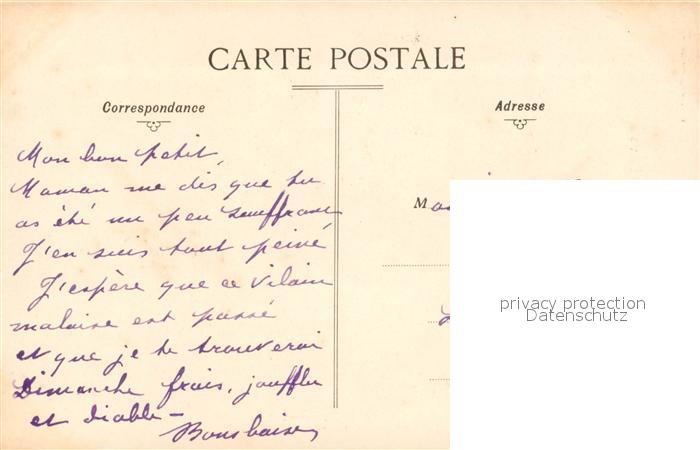 CARTE POSTALE
Correspondance
Adresse
Mon bon petit,
Maman me dis que tu
as été un peu souffrant
J'en suis tout peiné
J'espère que ce vilain
malaise est passé
et que je te trouverai
Dimanche frais, joufflu
et diable –
Bons baisers
M
privacy protection
Datenschutz